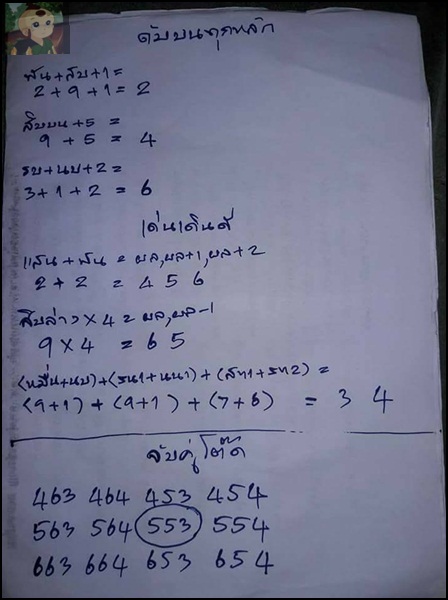 ดับบนทุกหลัก
พัน+สบ+1=
2+9+1=2
สิบบน+5 =
9 + 5 = 4
รบ+นบ+2=
3+1+2 = 6
เด่นเดินดี
แสน+พัน = ผล,ผล+1,ผล+2
2+2 = 4 5 6
สิบล่าง×4=ผล,ผล-1
9×4 = 6 5
(หมื่น+นบ)+(รน1+นน1)+(สท1+รท2)=
(9+1)+(9+1)+(7+6) = 3 4
จับคู่โต๊ด
463 464 453 454
563 564 553 554
663 664 653 654